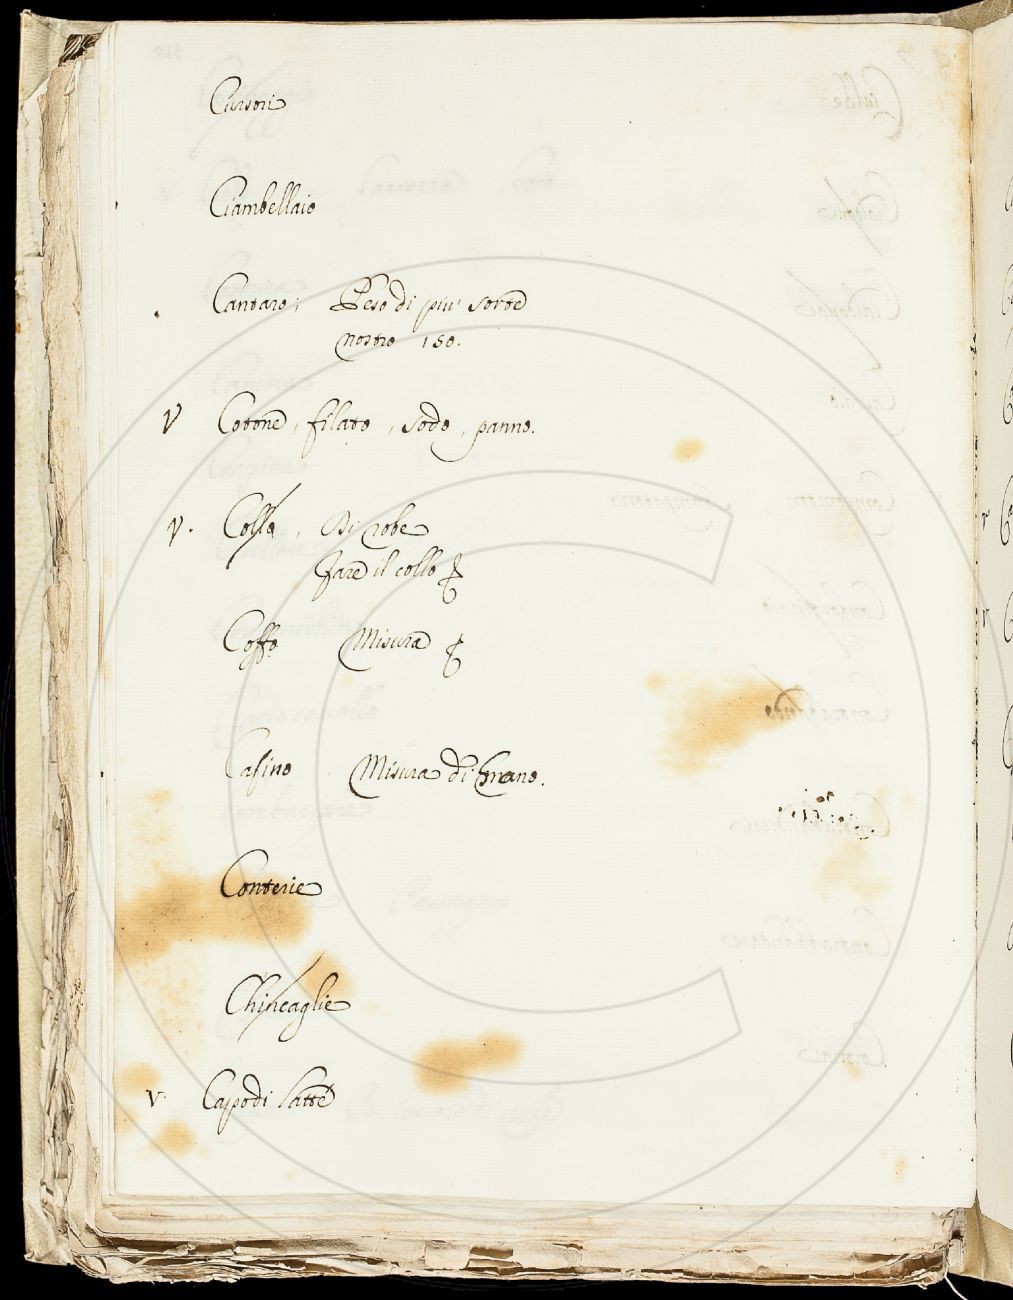 Cursori
Ciambellaio
Cantaro; Peso di piu' sorte
nostro 150.
V Cotone, filato, sodo, panno.
V. Colla, di robe
fare il collo
Coffo Misura
Cafino Misura di Grano.
Conterie
Chincaglie
V. Capo di latte